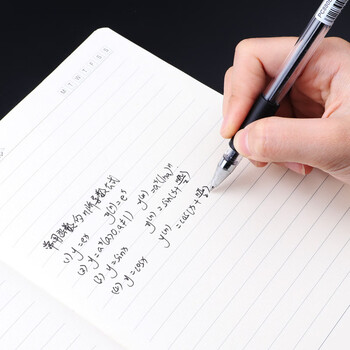 MTWTFSS
常用函数的n阶导数公式
(1) y=eˣ y⁽ⁿ⁾=eˣ
(2) y=aˣ(a>0,a≠1) y⁽ⁿ⁾=aˣ(lna)ⁿ
(3) y=sinx y⁽ⁿ⁾=sin(x+nπ/2)
(4) y=cosx y⁽ⁿ⁾=cos(x+nπ/2)